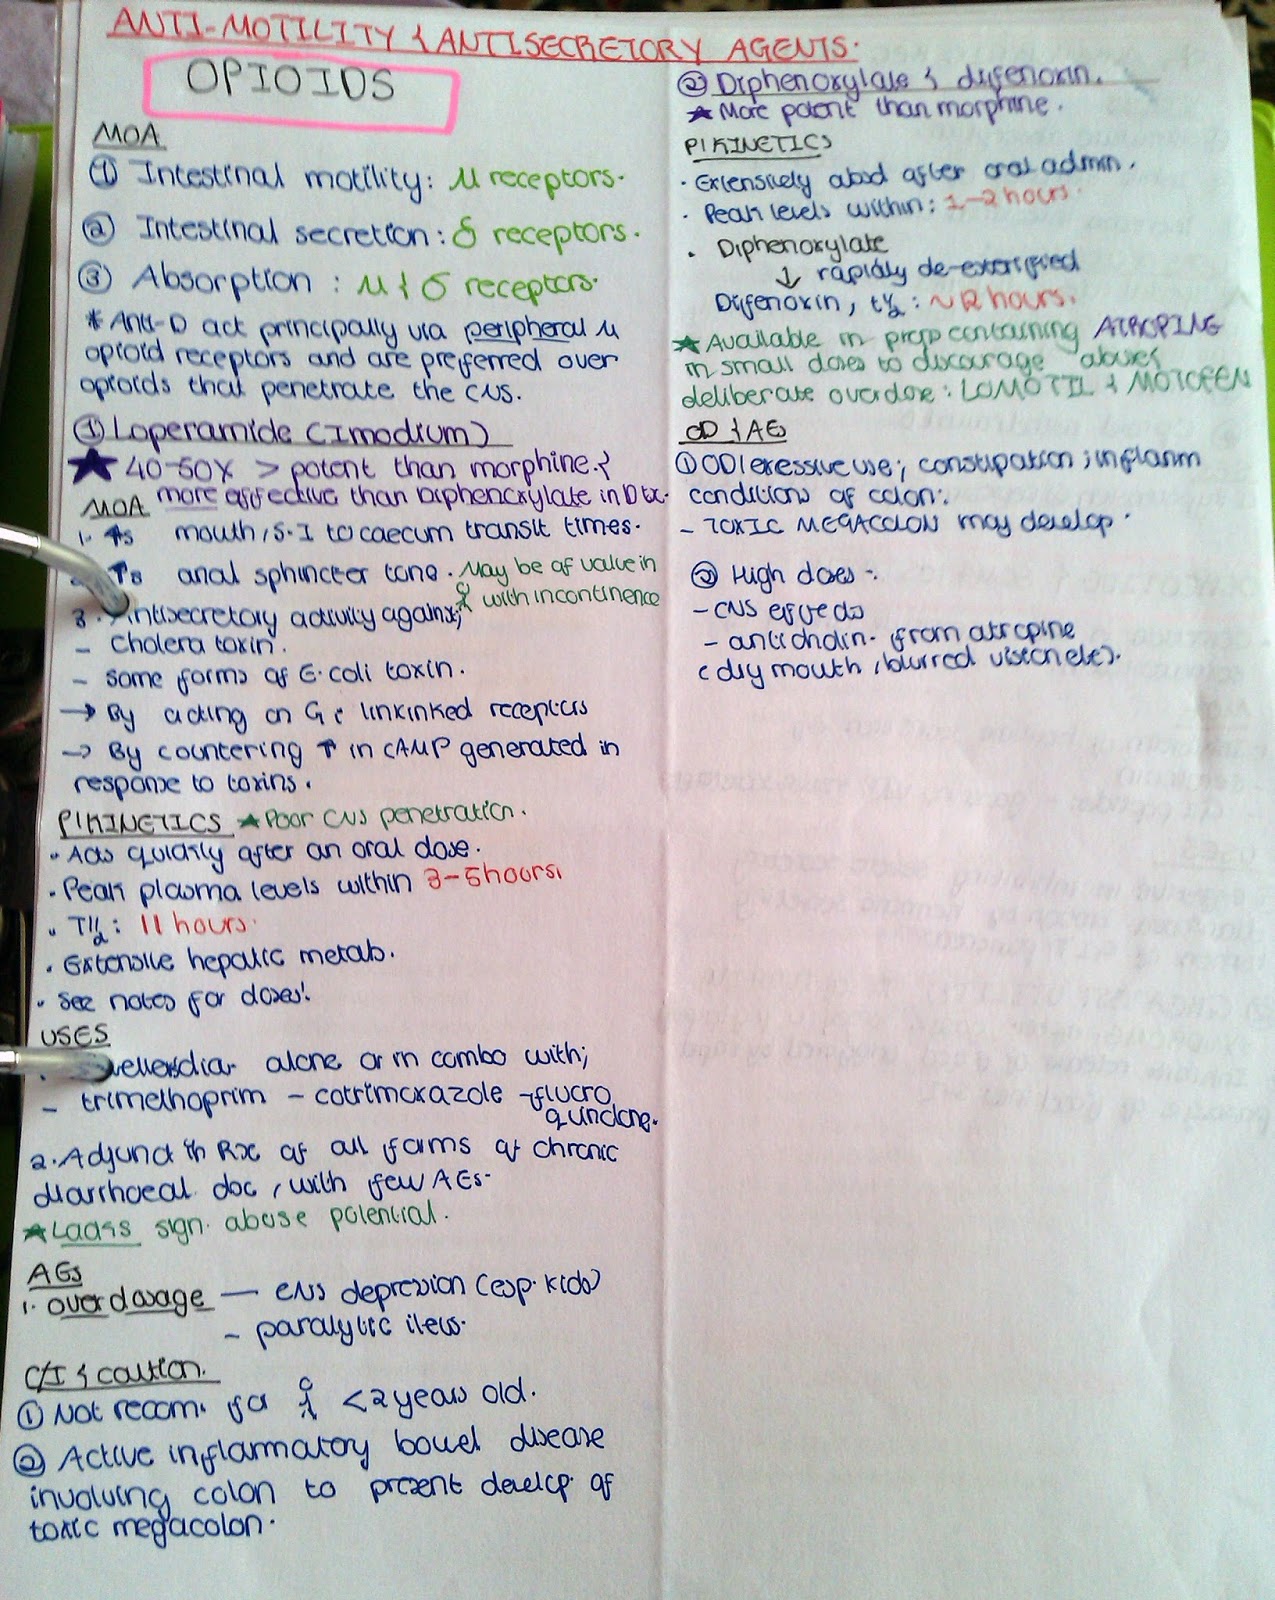 ANTI-MOTILITY & ANTISECRETORY AGENTS.
OPIOIDS
MOA
① Intestinal motility: μ receptors.
② Intestinal secretion: δ receptors.
③ Absorption: μ & δ receptors.
* Anti-D act principally via peripheral μ
opioid receptors and are preferred over
opioids that penetrate the CNS.
① Loperamide (Imodium)
★ 40-50X > potent than morphine. &
more effective than Diphenoxylate in D tx.
MOA
1. ↑s mouth, S.I to caecum transit times.
↑s anal sphincter tone. May be of value in
with incontinence
3. Antisecretory activity against;
- Cholera toxin.
- some forms of E. coli toxin.
→ By acting on G linkinked receptors
→ By countering ↑ in cAMP generated in
response to toxins.
P/KINETICS ★ Poor CNS penetration.
• Acts quickly after an oral dose.
• Peak plasma levels within 3-5 hours.
• T1/2: 11 hours.
• Extensive hepatic metab.
• See notes for doses!
USES
alone or in combo with;
- trimethoprim - cotrimoxazole - fluoro
quinolone.
2. Adjunct in Rx of all forms of chronic
diarrhoeal doc, with few AEs.
★ Lacks sign. abuse potential.
AEs
1. overdosage — CNS depression (esp. kids)
- paralytic ileus.
C/I & caution.
① Not recom. for <2 years old.
② Active inflammatory bowel disease
involving colon to prevent develop. of
toxic megacolon.
② Diphenoxylate & difenoxin.
★ More potent than morphine.
P/KINETICS
• Extensively absd after oral admin.
• Peak levels within: 1-2 hours.
• Diphenoxylate
↓ rapidly de-esterified
Difenoxin, t½: ~12 hours.
★ Available in prep containing ATROPINE
in small doses to discourage abuse &
deliberate overdose: LOMOTIL & MOTOFEN
OD & AEs
① OD/exessive use; constipation; inflamm
conditions of colon:
- TOXIC MEGACOLON may develop.
② High doses -
- CNS effects
- anticholin. from atropine
(dry mouth, blurred vision etc).